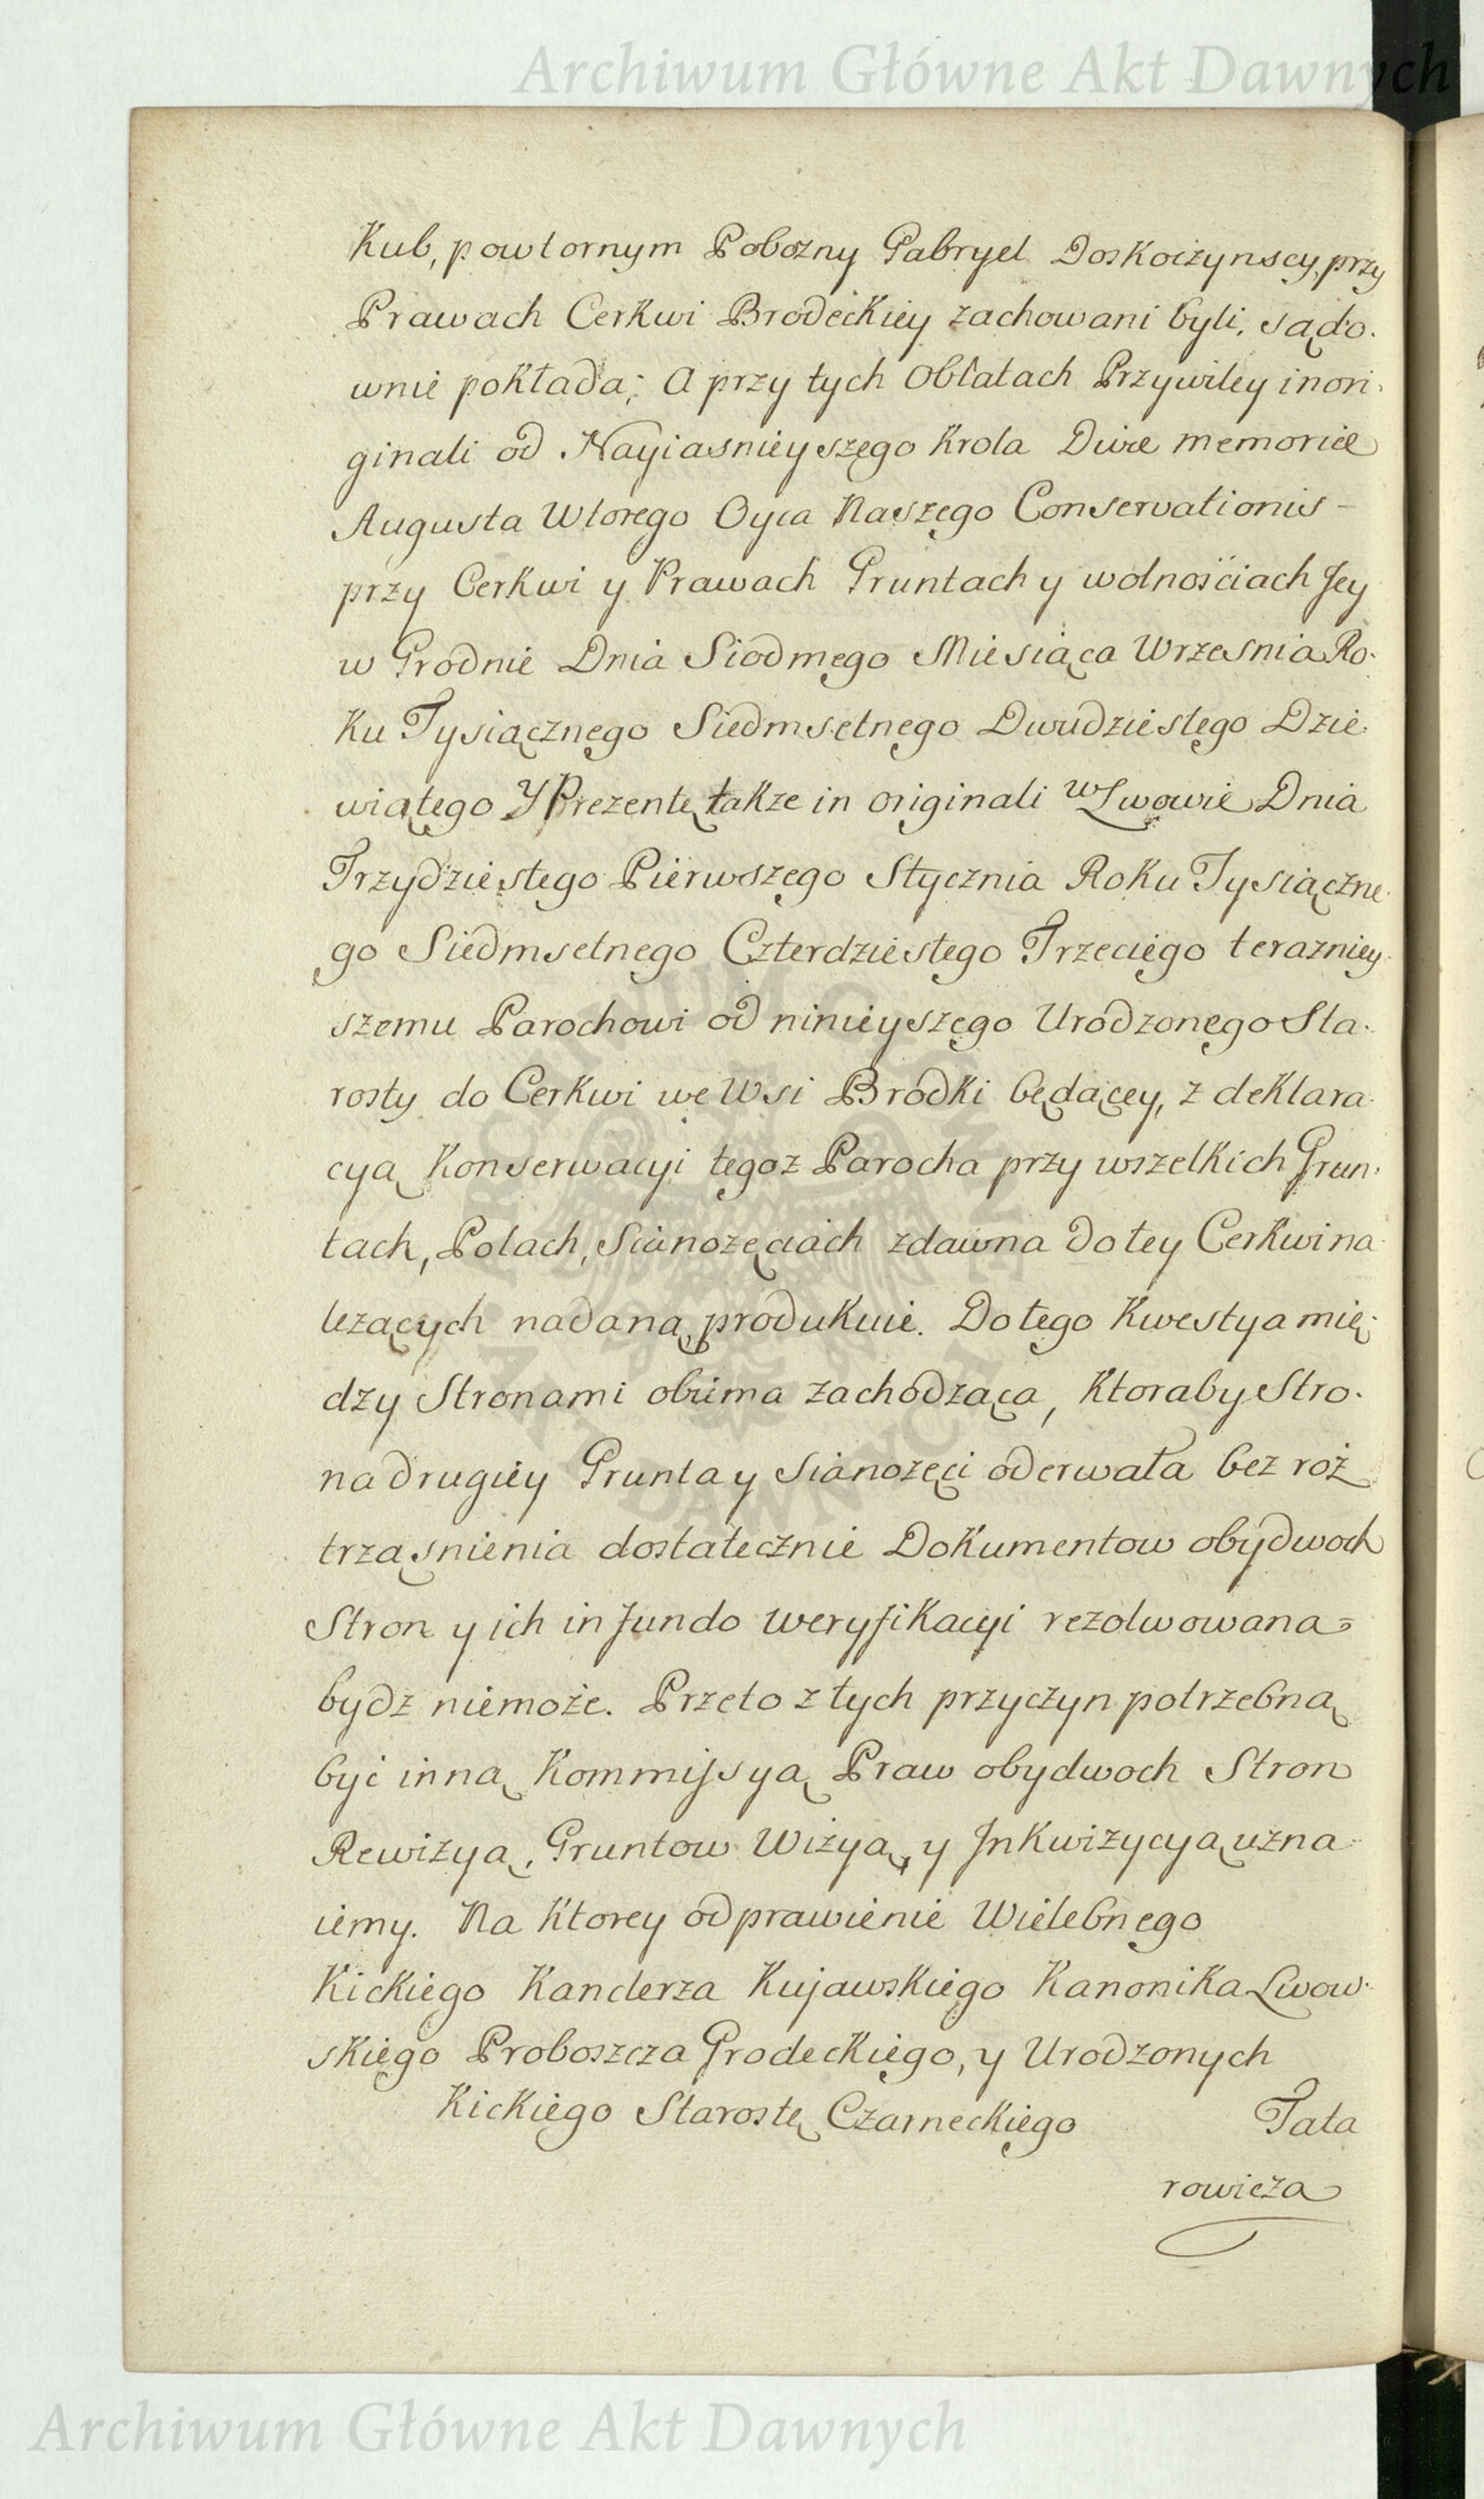 Archiwum Główne Akt Dawnych
Kub, powtornym Pobożny Gabryel Doskoczynscy, przy
Prawach Cerkwi Brodeckiey zachowani byli, sądo.
wnie pokłada; A przy tych Oblatach Przywiley in ori.
ginali od Nayiasnieyszego Krola Divæ memoriæ
Augusta Wtorego Oyca Naszego Conservationis –
przy Cerkwi y Prawach Gruntach y wolnościach Jey
w Grodnie Dnia Siodmego Miesiąca Wrzesnia Ro.
ku Tysiącznego Siedmsetnego Dwudziestego Dzie.
wiątego Y Prezentę także in originali w Lwowie Dnia
Trzydziestego Pierwszego Stycznia Roku Tysiączne.
go Siedmsetnego Czterdziestego Trzeciego terazniey.
szemu Parochowi od ninieyszego Urodzonego Sta.
rosty do Cerkwi we Wsi Brodki będącey, z deklara.
cyą Konserwacyi tegoz Parocha przy wszelkich Grun.
tach, Polach, Sianożęciach zdawna do tey Cerkwi na
leżących nadaną produkuie. Do tego Kwestya mię.
dzy Stronami obiema zachodząca, Ktoraby Stro.
na drugiey Grunta y Sianożęci oderwała bez roż
trząsnienia dostatecznie Dokumentow obydwoch
Stron y ich in fundo weryfikacyi rezolwowana
bydź niemoże. Przeto z tych przyczyn potrzebną
być inną Kommissyą Praw obydwoch Stron
Rewizyą, Gruntow Wizyą, y Inkwizycyą uzna
iemy. Na Ktorey odprawienie Wielebnego
Kickiego Kanclerza Kujawskiego Kanonika Lwow.
skiego Proboszcza Grodeckiego, y Urodzonych
Kickiego Starostę Czarneckiego Tata
rowicza
Archiwum Główne Akt Dawnych